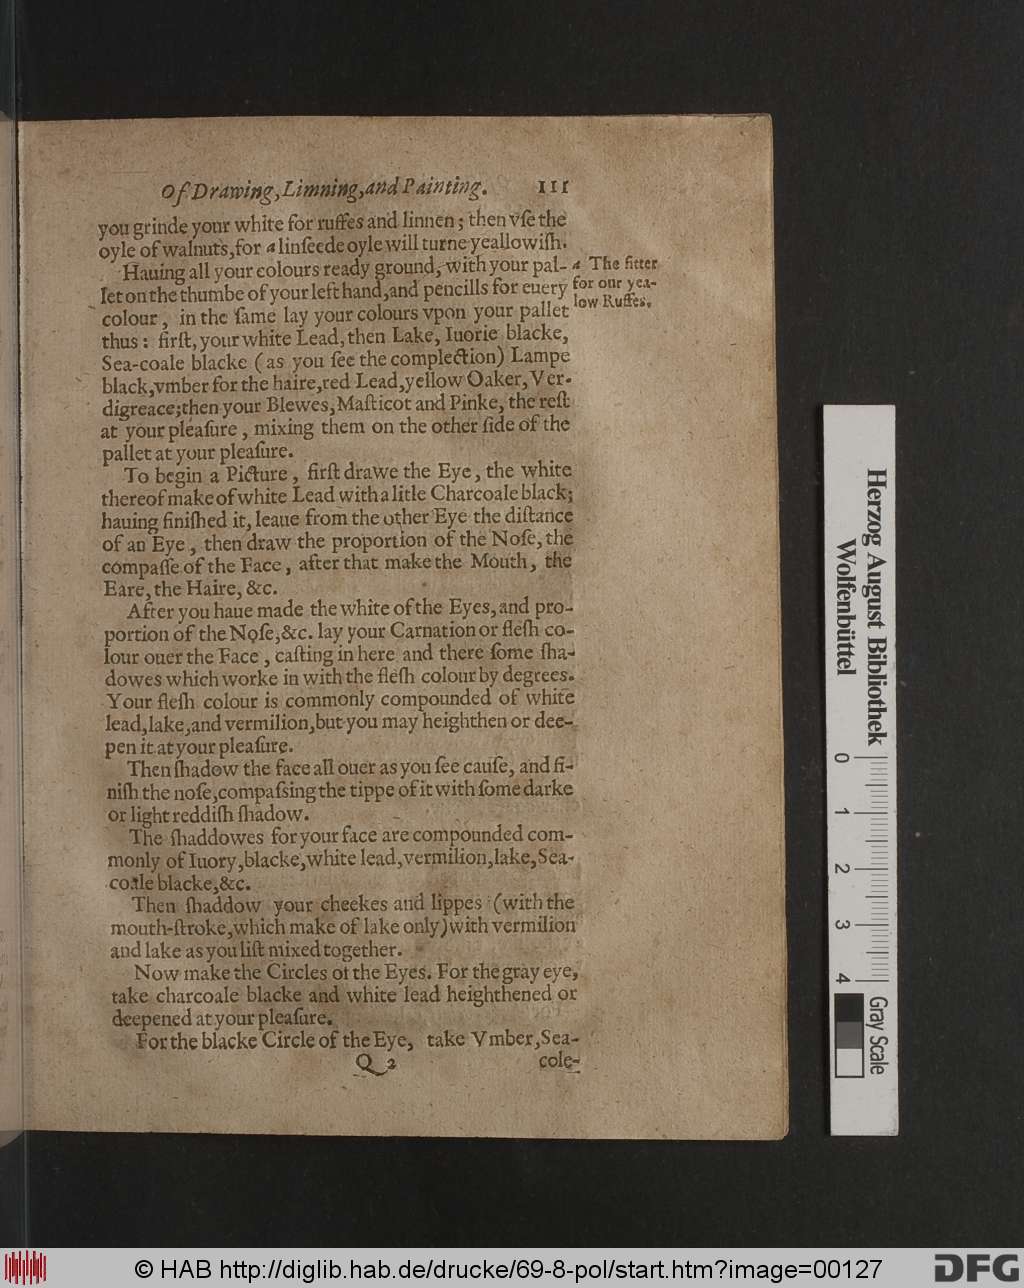 Of Drawing, Limning, and Painting. 111
you grinde your white for ruffes and linnen; then vſe the
oyle of walnuts, for a linſeede oyle will turne yeallowiſh.
Hauing all your colours ready ground, with your pal-
let on the thumbe of your left hand, and pencills for euery
colour, in the ſame lay your colours vpon your pallet
thus: firſt, your white Lead, then Lake, Iuorie blacke,
Sea-coale blacke (as you ſee the complection) Lampe
black, vmber for the haire, red Lead, yellow Oaker, Ver-
digreace; then your Blewes, Maſticot and Pinke, the reſt
at your pleaſure, mixing them on the other ſide of the
pallet at your pleaſure.
a The fitter
for our yea-
low Ruffes.
To begin a Picture, firſt drawe the Eye, the white
thereof make of white Lead with a litle Charcoale black;
hauing finiſhed it, leaue from the other Eye the diſtance
of an Eye, then draw the proportion of the Noſe, the
compaſſe of the Face, after that make the Mouth, the
Eare, the Haire, &c.
After you haue made the white of the Eyes, and pro-
portion of the Noſe, &c. lay your Carnation or fleſh co-
lour ouer the Face, caſting in here and there ſome ſha-
dowes which worke in with the fleſh colour by degrees.
Your fleſh colour is commonly compounded of white
lead, lake, and vermilion, but you may heighthen or dee-
pen it at your pleaſure.
Then ſhadow the face all ouer as you ſee cauſe, and fi-
niſh the noſe, compaſsing the tippe of it with ſome darke
or light reddiſh ſhadow.
The ſhaddowes for your face are compounded com-
monly of Iuory, blacke, white lead, vermilion, lake, Sea-
coale blacke, &c.
Then ſhaddow your cheekes and lippes (with the
mouth-ſtroke, which make of lake only) with vermilion
and lake as you liſt mixed together.
Now make the Circles of the Eyes. For the gray eye,
take charcoale blacke and white lead heighthened or
deepened at your pleaſure.
For the blacke Circle of the Eye, take Vmber, Sea-
Q 2 cole-
Herzog August Bibliothek
Wolfenbüttel
0 1 2 3 4
Gray Scale
© HAB http://diglib.hab.de/drucke/69-8-pol/start.htm?image=00127
DFG